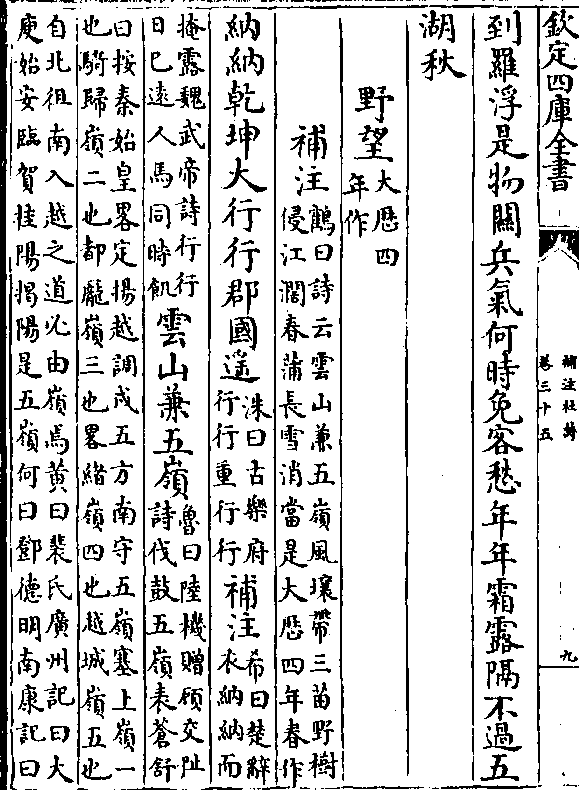 欽定四庫全書
補注杜詩
卷三十五
九
到羅浮是物關兵氣何時免客愁年年霜露隔不過五
湖秋
野望大厯四
年作
補注鶴曰詩云雲山兼五嶺風壤帶三苗野樹
侵江濶春蒲長雪消當是大厯四年春作
納納乾坤大行行郡國遙洙曰古樂府
行行重行行補注希曰楚辭
衣納納而
掩露魏武帝詩行行
日已遠人馬同時飢雲山兼五嶺魯曰陸機贈顧交阯
詩伐鼓五嶺表蒼舒
曰按秦始皇畧定揚越謫戍五方南守五嶺塞上嶺一
也騎歸嶺二也都龐嶺三也畧緒嶺四也越城嶺五也
自北徂南入越之道必由嶺焉黄曰裴氏廣州記曰大
庾始安臨賀桂陽揭陽是五嶺何曰鄧德明南康記曰